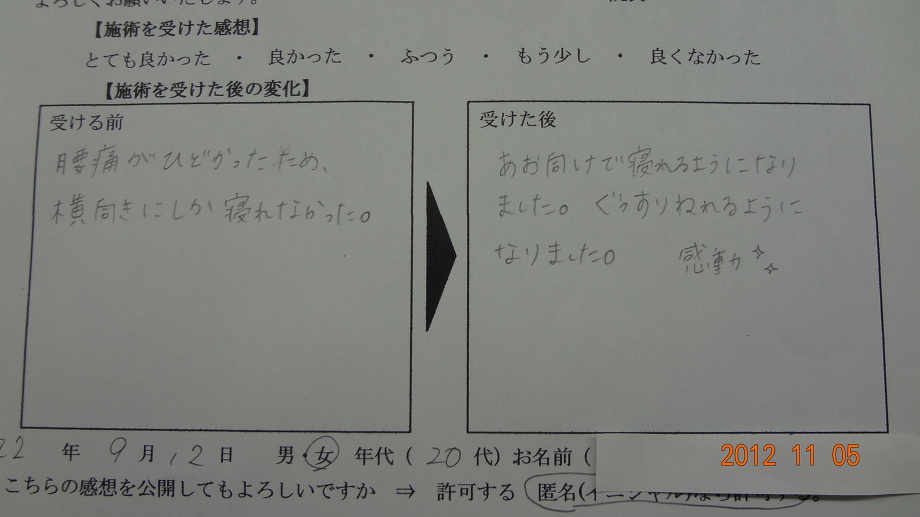 よろしくお願いいたします。
【施術を受けた感想】
とても良かった ・ 良かった ・ ふつう ・ もう少し ・ 良くなかった
【施術を受けた後の変化】
受ける前
腰痛がひどかったため、
横向きにしか寝れなかった。
受けた後
あお向けで寝れるようになり
ました。ぐっすりねれるように
なりました。 感動
22 年 9 月 12 日 男・女 年代( 20 代)お名前(
2012 11 05
こちらの感想を公開してもよろしいですか ⇒ 許可する 匿名(イニシャル)なら許可する。